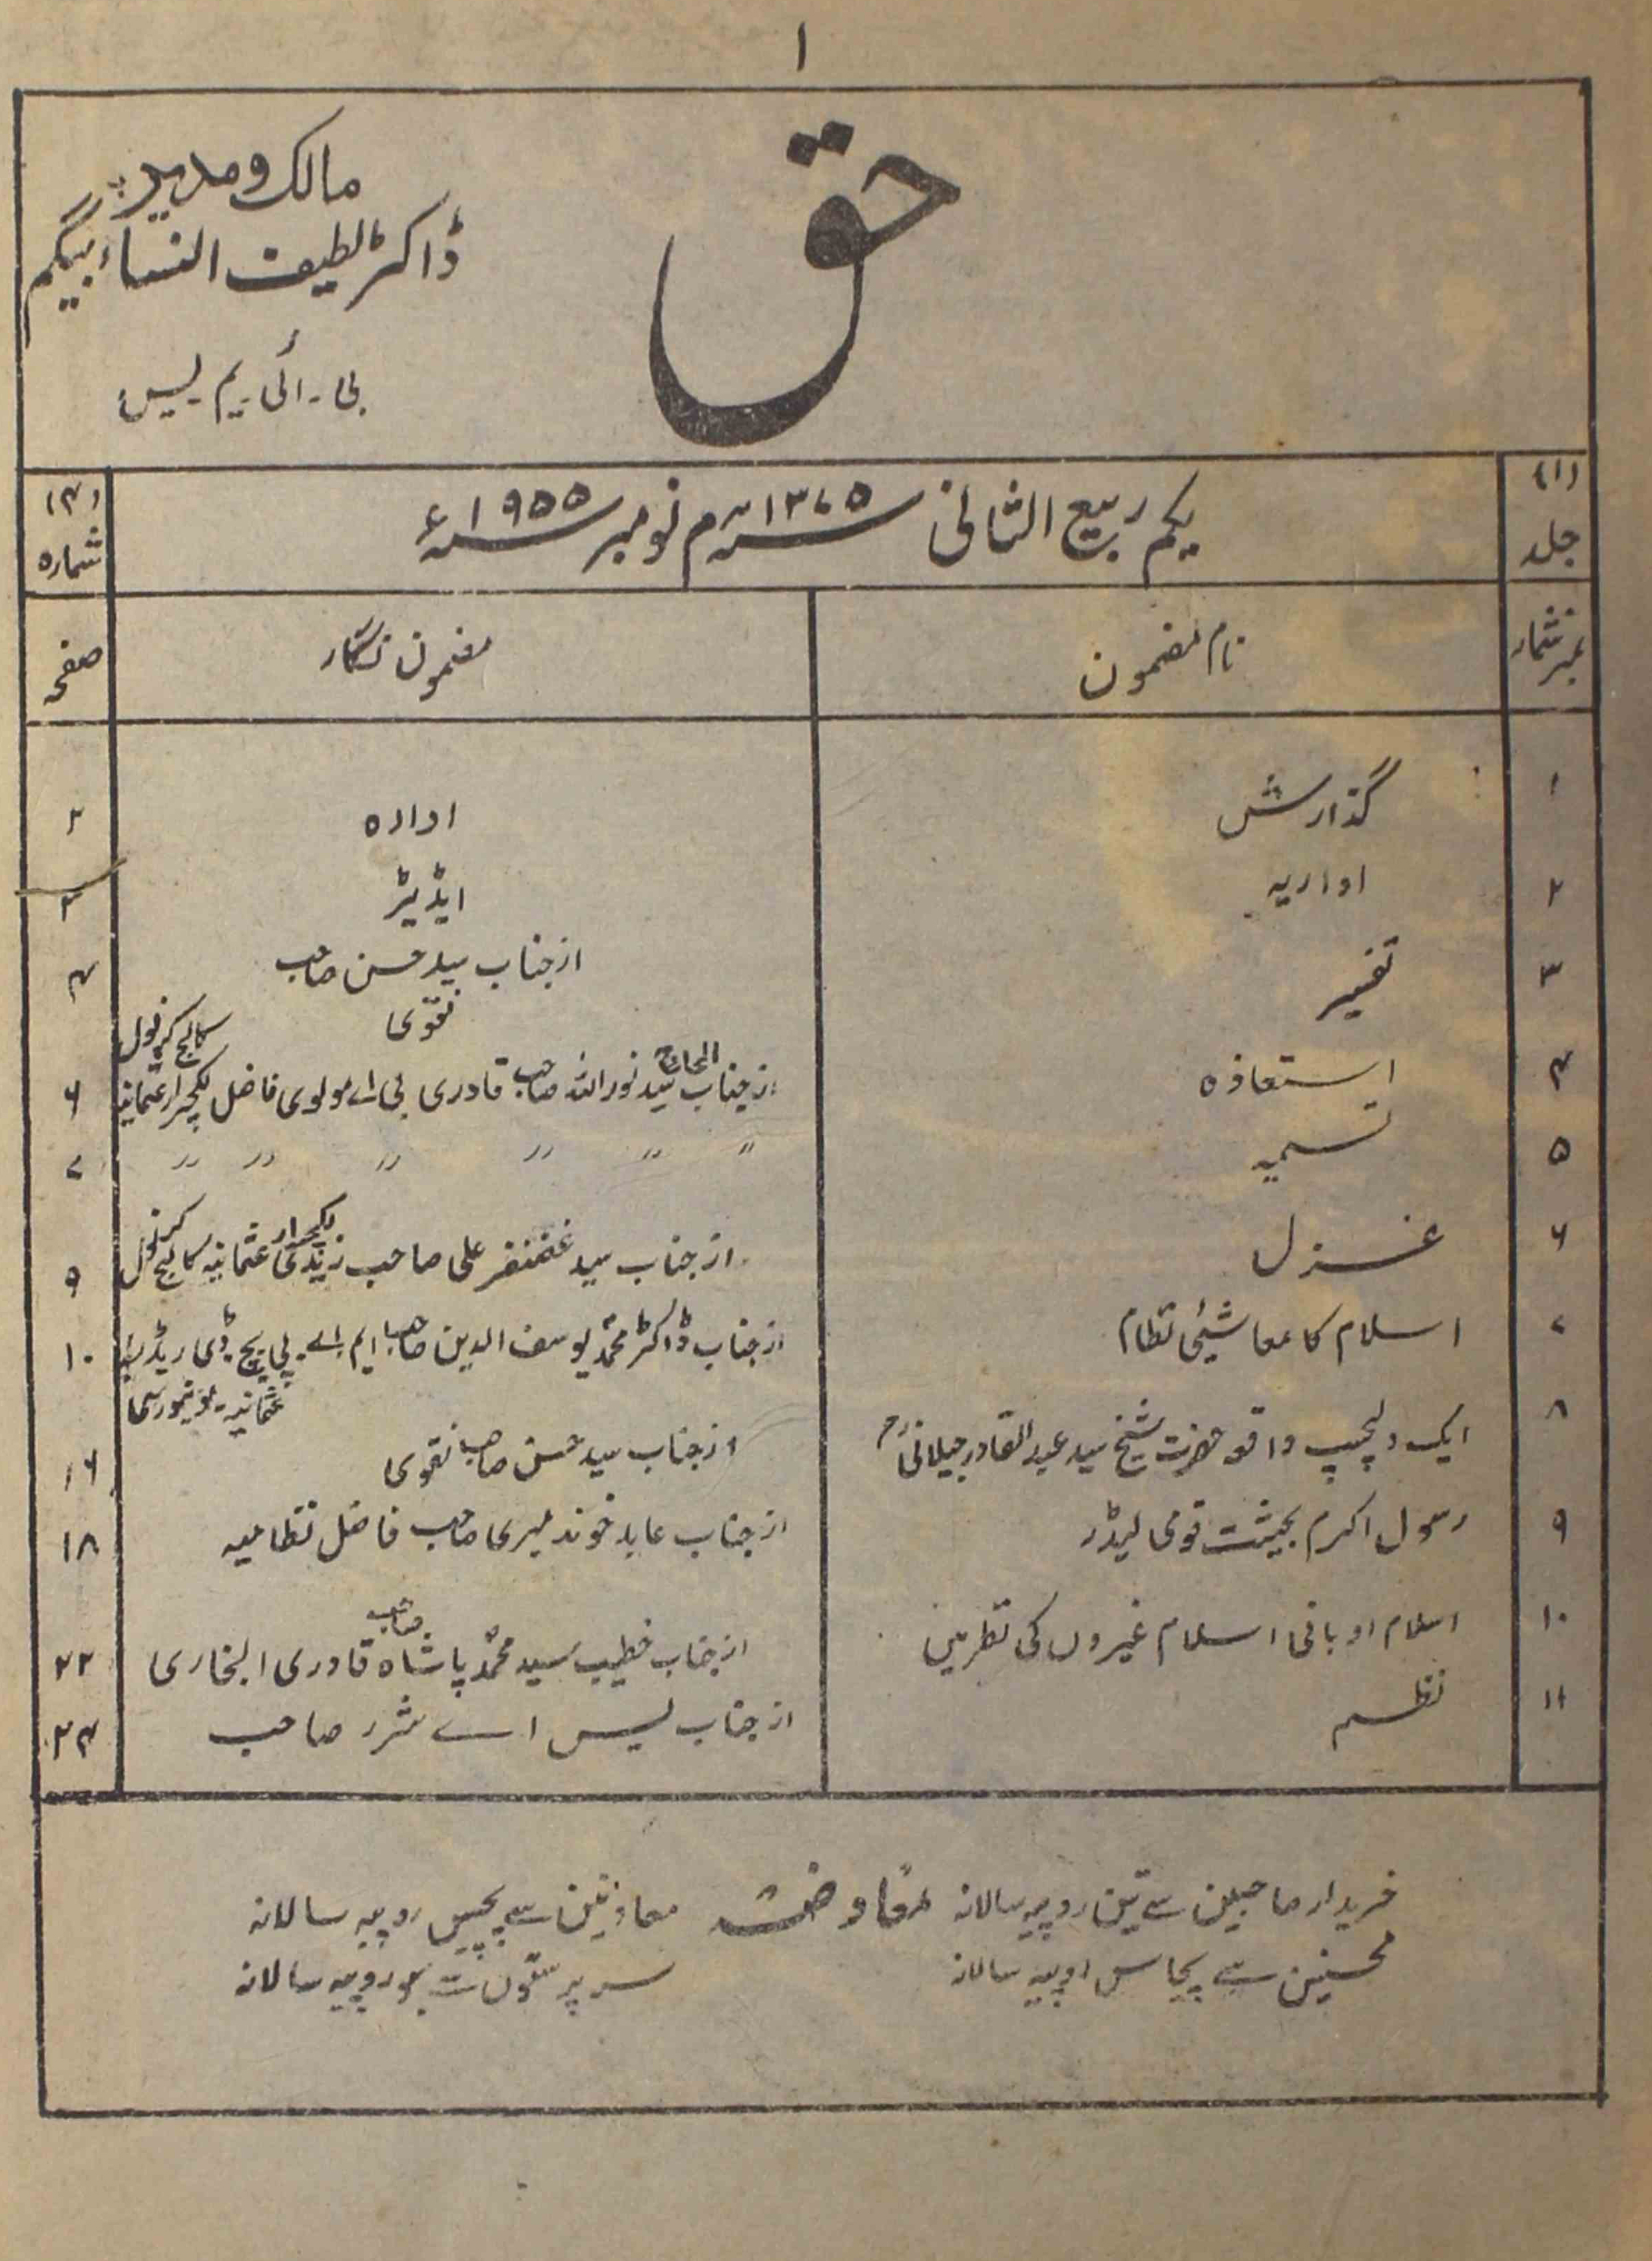 ۱
حق
مالک و مدیر
ڈاکٹر لطیف النساء بیگم
بی۔ آئی۔ یم یس
(۱) جلد یکم ربیع الثانی ۱۳۷۵ سنہ م نومبر ۱۹۵۵ سنہ ء (۴) شمارہ
نمبر شمار نام مضمون مضمون نگار صفحہ
۱ گذارش ادارہ ۲
۲ اداریہ ایڈیٹر ۳
۳ تفسیر از جناب سید حسن صاحب نقوی ۴
۴ استعاذہ از جناب الحاج سید نور اللہ صاحب قادری بی اے مولوی فاضل لکچرار عثمانیہ کالج کرنول ۶
۵ تسمیہ " " " " " " ۷
۶ غزل از جناب سید غضنفر علی صاحب زیدی لکچرار عثمانیہ کالج کرنول ۹
۷ اسلام کا معاشیئی نظام از جناب ڈاکٹر محمد یوسف الدین صاحب ایم اے۔ پی یچ۔ ڈی ریڈر عثمانیہ۔ یونیورسٹی ۱۰
۸ ایک دلچسپ واقعہ حضرت شیخ سید عبدالقادر جیلانیؒ از جناب سید حسن صاحب نقوی ۱۶
۹ رسول اکرم بحیثت قومی لیڈر از جناب عابد خوند میری صاحب فاضل نظامیہ ۱۸
۱۰ اسلام او بانی اسلام غیروں کی نظر میں از جناب خطیب سید محمد پاشاہ صاحب قادری البخاری ۲۲
۱۱ نظم از جناب یس اے شرر صاحب ۲۴
معاوضہ
خریدار صاحبین سے تین روپیہ سالانہ معاونین سے پچیس روپیہ سالانہ
محسنین سے پچاس روپیہ سالانہ سرپرستوں سے سو روپیہ سالانہ